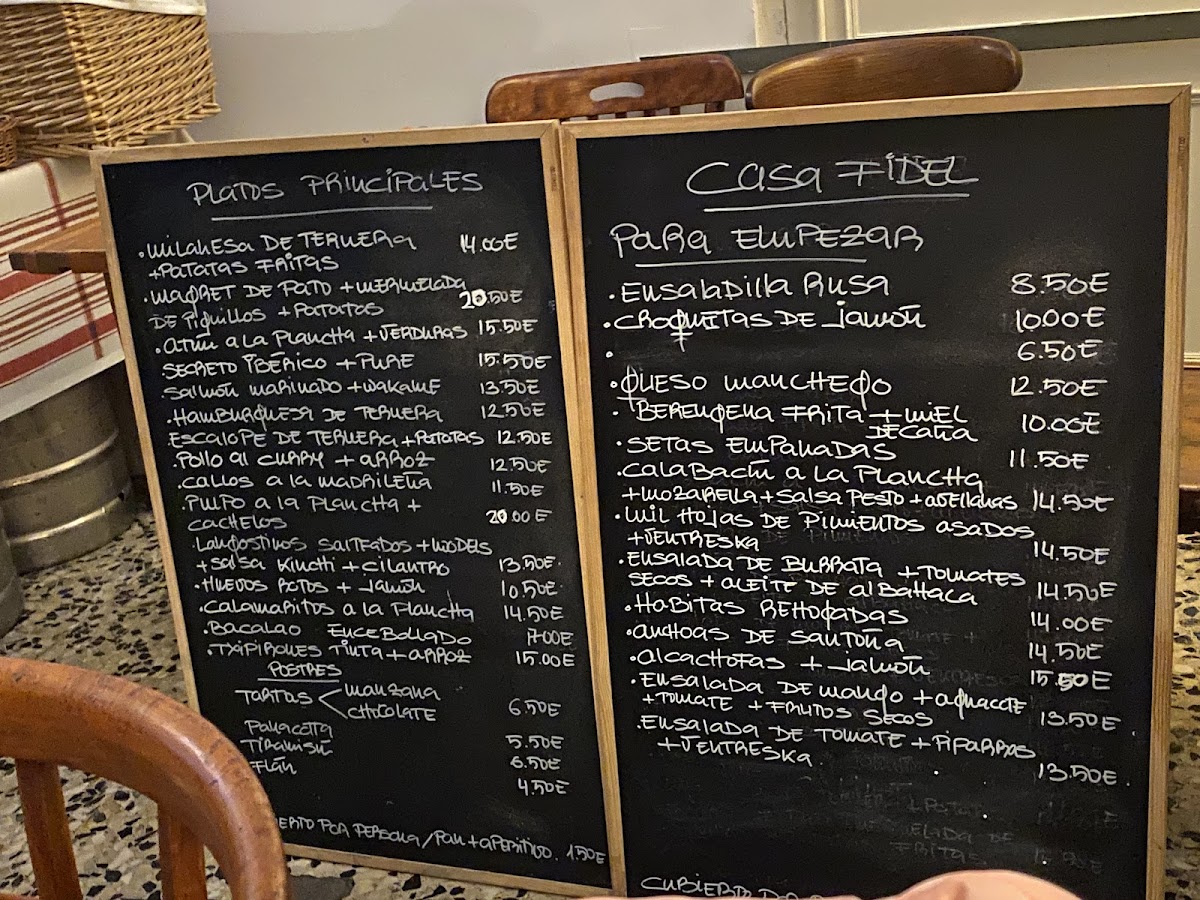 PLATOS PRINCIPALES
• MILANESA DE TERNERA 14.00€
+ PATATAS FRITAS
• MAGRET DE PATO + MERMELADA
DE PIQUILLOS + PATATAS 20.50€
• ATÚN A LA PLANCHA + VERDURAS 15.50€
SECRETO IBÉRICO + PURE 15.50€
SALMÓN MARINADO + WAKAME 13.50€
• HAMBURGUESA DE TERNERA 12.50€
ESCALOPE DE TERNERA + PATATAS 12.50€
• POLLO AL CURRY + ARROZ 12.50€
• CALLOS A LA MADRILEÑA 11.50€
• PULPO A LA PLANCHA +
CACHELOS 20.00€
• LANGOSTINOS SALTEADOS + NOODELS
+ SALSA KIMCHI + CILANTRO 13.50€
• HUEVOS ROTOS + JAMÓN 10.50€
• CALAMARITOS A LA PLANCHA 14.50€
• BACALAO ENCEBOLLADO 17.00€
• TXIPIRONES TINTA + ARROZ 15.00€
POSTRES
TARTAS MANZANA
CHOCOLATE 6.50€
PANACOTTA 5.50€
TIRAMISÚ 6.50€
FLAN 4.50€
POR PERSONA / PAN + APERITIVO. 1.50€
CASA FIDEL
PARA EMPEZAR
• ENSALADILLA RUSA 8.50€
• CROQUETAS DE JAMÓN 10.00€
• 6.50€
• QUESO MANCHEGO 12.50€
• BERENGENA FRITA + MIEL
DE CAÑA 10.00€
• SETAS EMPANADAS 11.50€
• CALABACÍN A LA PLANCHA
+ MOZARELLA + SALSA PESTO + AVELLANAS 14.50€
• MIL HOJAS DE PIMIENTOS ASADOS
+ VENTRESKA 14.50€
• ENSALADA DE BURRATA + TOMATES
SECOS + ACEITE DE ALBAHACA 14.50€
• HABITAS REHOGADAS 14.00€
• ANCHOAS DE SANTOÑA 14.50€
• ALCACHOFAS + JAMÓN 15.50€
• ENSALADA DE MANGO + AGUACATE
+ TOMATE + FRUTOS SECOS 13.50€
• ENSALADA DE TOMATE + PIPARRAS
+ VENTRESKA 13.50€
CUBIERTO